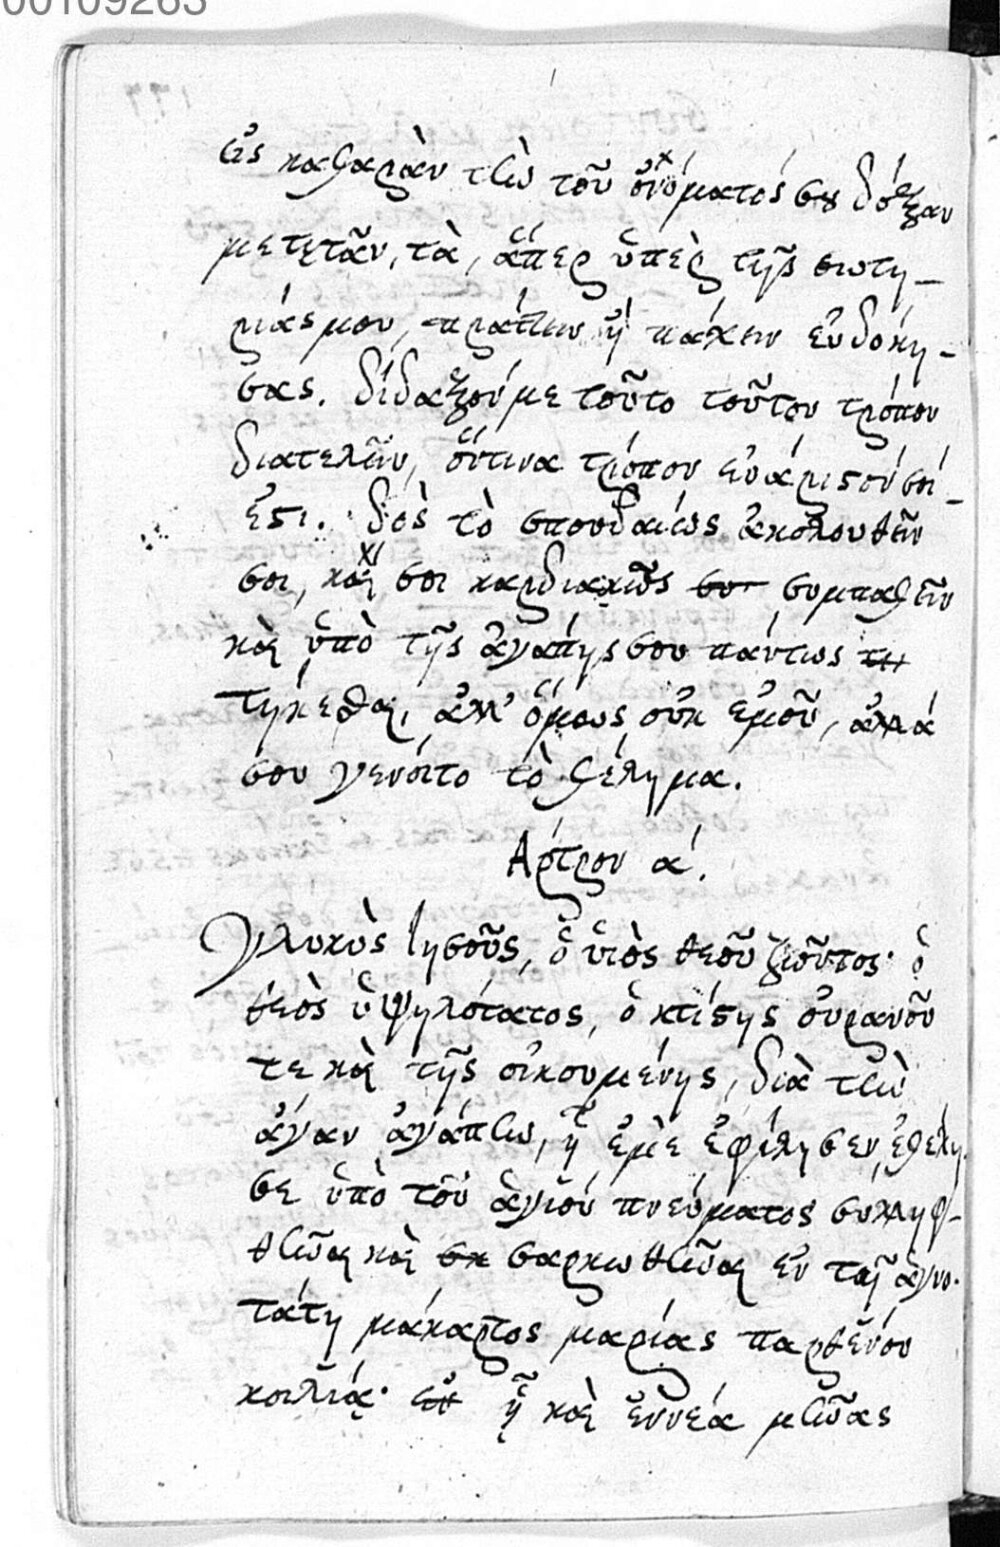 00109263
εἰς καθαρὰν τὴν τοῦ ὀνόματός σου δόξαν
μετιτᾶν, τὰ, ἅπερ ὑπὲρ τῆς σωτη–
ρίας μου, πράττειν ἢ πάχειν εὐδοκή–
σας. δίδαξόν με τοῦτο τοῦτον τρόπον
διατελεῖν, ὅντινα τρόπον εὐάριστόν σοί
ἐστι. δὸς τὸ σπουδαίως ἀκολουθεῖν
σοι, καὶ σοι καρδιακῶς συμπαθεῖν
καὶ ὑπὸ τῆς ἀγάπης σου πάντως
τήκεσθαι, ἀλλ' ὅμως οὐκ ἐμοῦ, ἀλλά
σου γενοίτο τὸ θέλημα.
Αρτρον α΄.
Γλυκὺς Ἰησοῦς, ὁ ὑιὸς θεοῦ ζῶντος· ὁ
θεὸς ὑψηλότατος, ὁ κτίστης οὐρανοῦ
τε καὶ τῆς οἰκουμένης, διὰ τὴν
ἄγαν ἀγάπην, ᾗ ἐμὲ ἐφίλησεν, ἐθέλη
σε ὑπὸ τοῦ ἁγίου πνεύματος συλληφ–
θῆναι καὶ σαρκωθῆναι ἐν τῇ ἁγνο·
τάτῃ μάκαρτος μαρίας παρθένου
κοιλίᾳ· ᾗ καὶ ἐννέα μῆνας